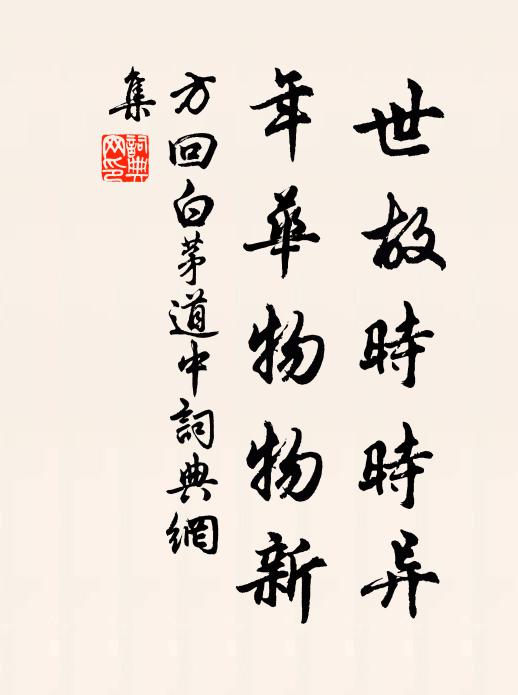 世故時時异
年華物物新
方回白茅道中詞典網
集
詞典网印